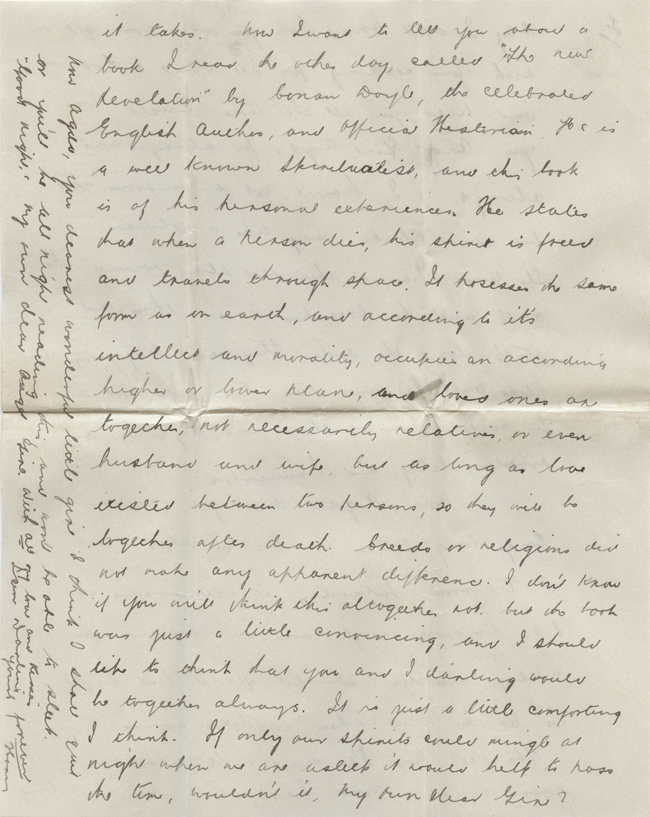 it takes. Now I want to tell you about a
book I read the other day, called "The new
Revelation" by Conan Doyle, the celebrated
English Author, and Official Historian. He is
a well known Spiritualist, and this book
is of his personal experiences. He states
that when a person dies, his spirit is freed
and travels through space. It posesses the same
form as on earth, and according to it's
intellect and morality, occupies an according
higher or lower plane, and loved ones are
together, not necessarily relatives, or even
husband and wife, but as long as love
existed between two persons, so they will be
together after death. Creeds or religions did
not make any apparent difference. I don't know
if you will think this altogether rot. but the book
was just a little convincing, and I should
like to think that you and I darling would
be together always. It is just a little comforting
I think. If only our spirits could mingle at
night when we are asleep it would help to pass
the time, wouldn't it, my own dear Girl?
You dearest wonderful little girl I think I shall
or you'll be all night reading this, and won't be able to sleep.
"Good night," my own dear Girl with all my love and kisses
Yours forever